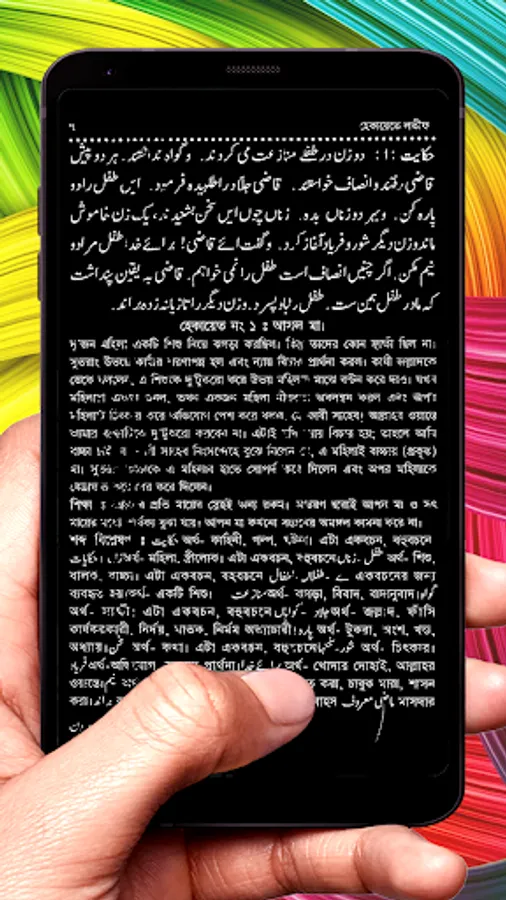 হেকায়েতে লতীফ
حکایت :1: دو زن در طفلے منازعت می کردند۔ وگواہ نداشتند۔ ہر دو پیش
قاضی رفتند و انصاف خواستند۔ قاضی جلاد را طلبیدہ فرمود۔ ایں طفل را دو
پارہ کن۔ وبہر دو زناں بدہ۔ زناں چوں ایں سخن بشنیدند، یک زن خاموش
ماند وزن دیگر شور و فریاد آغاز کرد۔ وگفت ائے قاضی! برائے خدا طفل مرا دو
نیم مکن۔ اگر چنیں انصاف است طفل را نمی خواہم۔ قاضی بہ یقین پنداشت
کہ مادر طفل ہمین ست۔ طفل را باو سپرد۔ وزن دیگر را تازیانہ زدہ براند۔
হেকায়েত নং ১ : আসল মা।
দু'জন মহিলা একটি শিশু নিয়ে ঝগড়া করছিল। কিন্তু তাদের কোন সাক্ষী ছিল না।
সুতরাং উভয়ে কাজীর শরণাপন্ন হল এবং ন্যায় বিচার প্রার্থনা করল। কাজী জল্লাদকে
ডেকে বললেন, এ শিশুকে দু'টুকরো করে উভয় মহিলার মাঝে বন্টন করে দাও। যখন
মহিলারা এ কথা শুনল, তখন একজন মহিলা নীরবতা অবলম্বন করল এবং অপর
মহিলাটি চিৎকার করে অভিযোগ পেশ করে বলল, হে কাজী সাহেব! আল্লাহর ওয়াস্তে
আমার বাচ্চাটিকে দু'টুকরো করবেন না। এটাই যদি ন্যায় বিচার হয়; তাহলে আমি
বাচ্চা চাই না। কাজী সাহেব নিঃসন্দেহে বুঝে নিলেন যে, এ মহিলাই বাচ্চার (প্রকৃত)
মা। সুতরাং বাচ্চাকে এ মহিলার হাতে সোপর্দ করে দিলেন এবং অপর মহিলাকে
বেত্রাঘাত করে বের করে দিলেন।
শিক্ষা : মায়ের প্রতি মায়ের স্নেহই অন্য রকম। মায়া দ্বারাই আপন মা ও সৎ
মায়ের মধ্যে পার্থক্য বুঝা যায়। আপন মা কখনো বাচ্চাদের অমঙ্গল কামনা করে না।
শব্দ বিশ্লেষণ : حکایت অর্থ- কাহিনী, গল্প, ঘটনা। এটা একবচন, বহুবচনে
حکایات। زن অর্থ- মহিলা, স্ত্রীলোক। এটা একবচন, বহুবচনে زناں۔ طفل অর্থ- শিশু,
বালক, বাচ্চা। এটা একবচন, বহুবচনে اطفال، طفلاں۔ ے একবচনের জন্য
ব্যবহৃত হয়। অর্থ- একটি শিশু। منازعت অর্থ- ঝগড়া, বিবাদ, বাদানুবাদ। گواہ
অর্থ- সাক্ষী; এটা একবচন, বহুবচনে گواہاں۔ جلاد অর্থ- জল্লাদ, ফাঁসি
কার্যকরকারী, নির্দয়, ঘাতক, নির্মম অত্যাচারী। پارہ অর্থ- টুকরা, অংশ, খণ্ড,
অধ্যায়। سخن অর্থ- কথা। এটা একবচন, বহুবচনে سخناں۔ شور অর্থ- চিৎকার।
فریاد অর্থ- অভিযোগ, প্রার্থনা। برائے خدا অর্থ- খোদার দোহাই, আল্লাহর
ওয়াস্তে। نیم অর্থ- করা, চাবুক মারা, শাসন
করা। ماضی معروف মাসদার